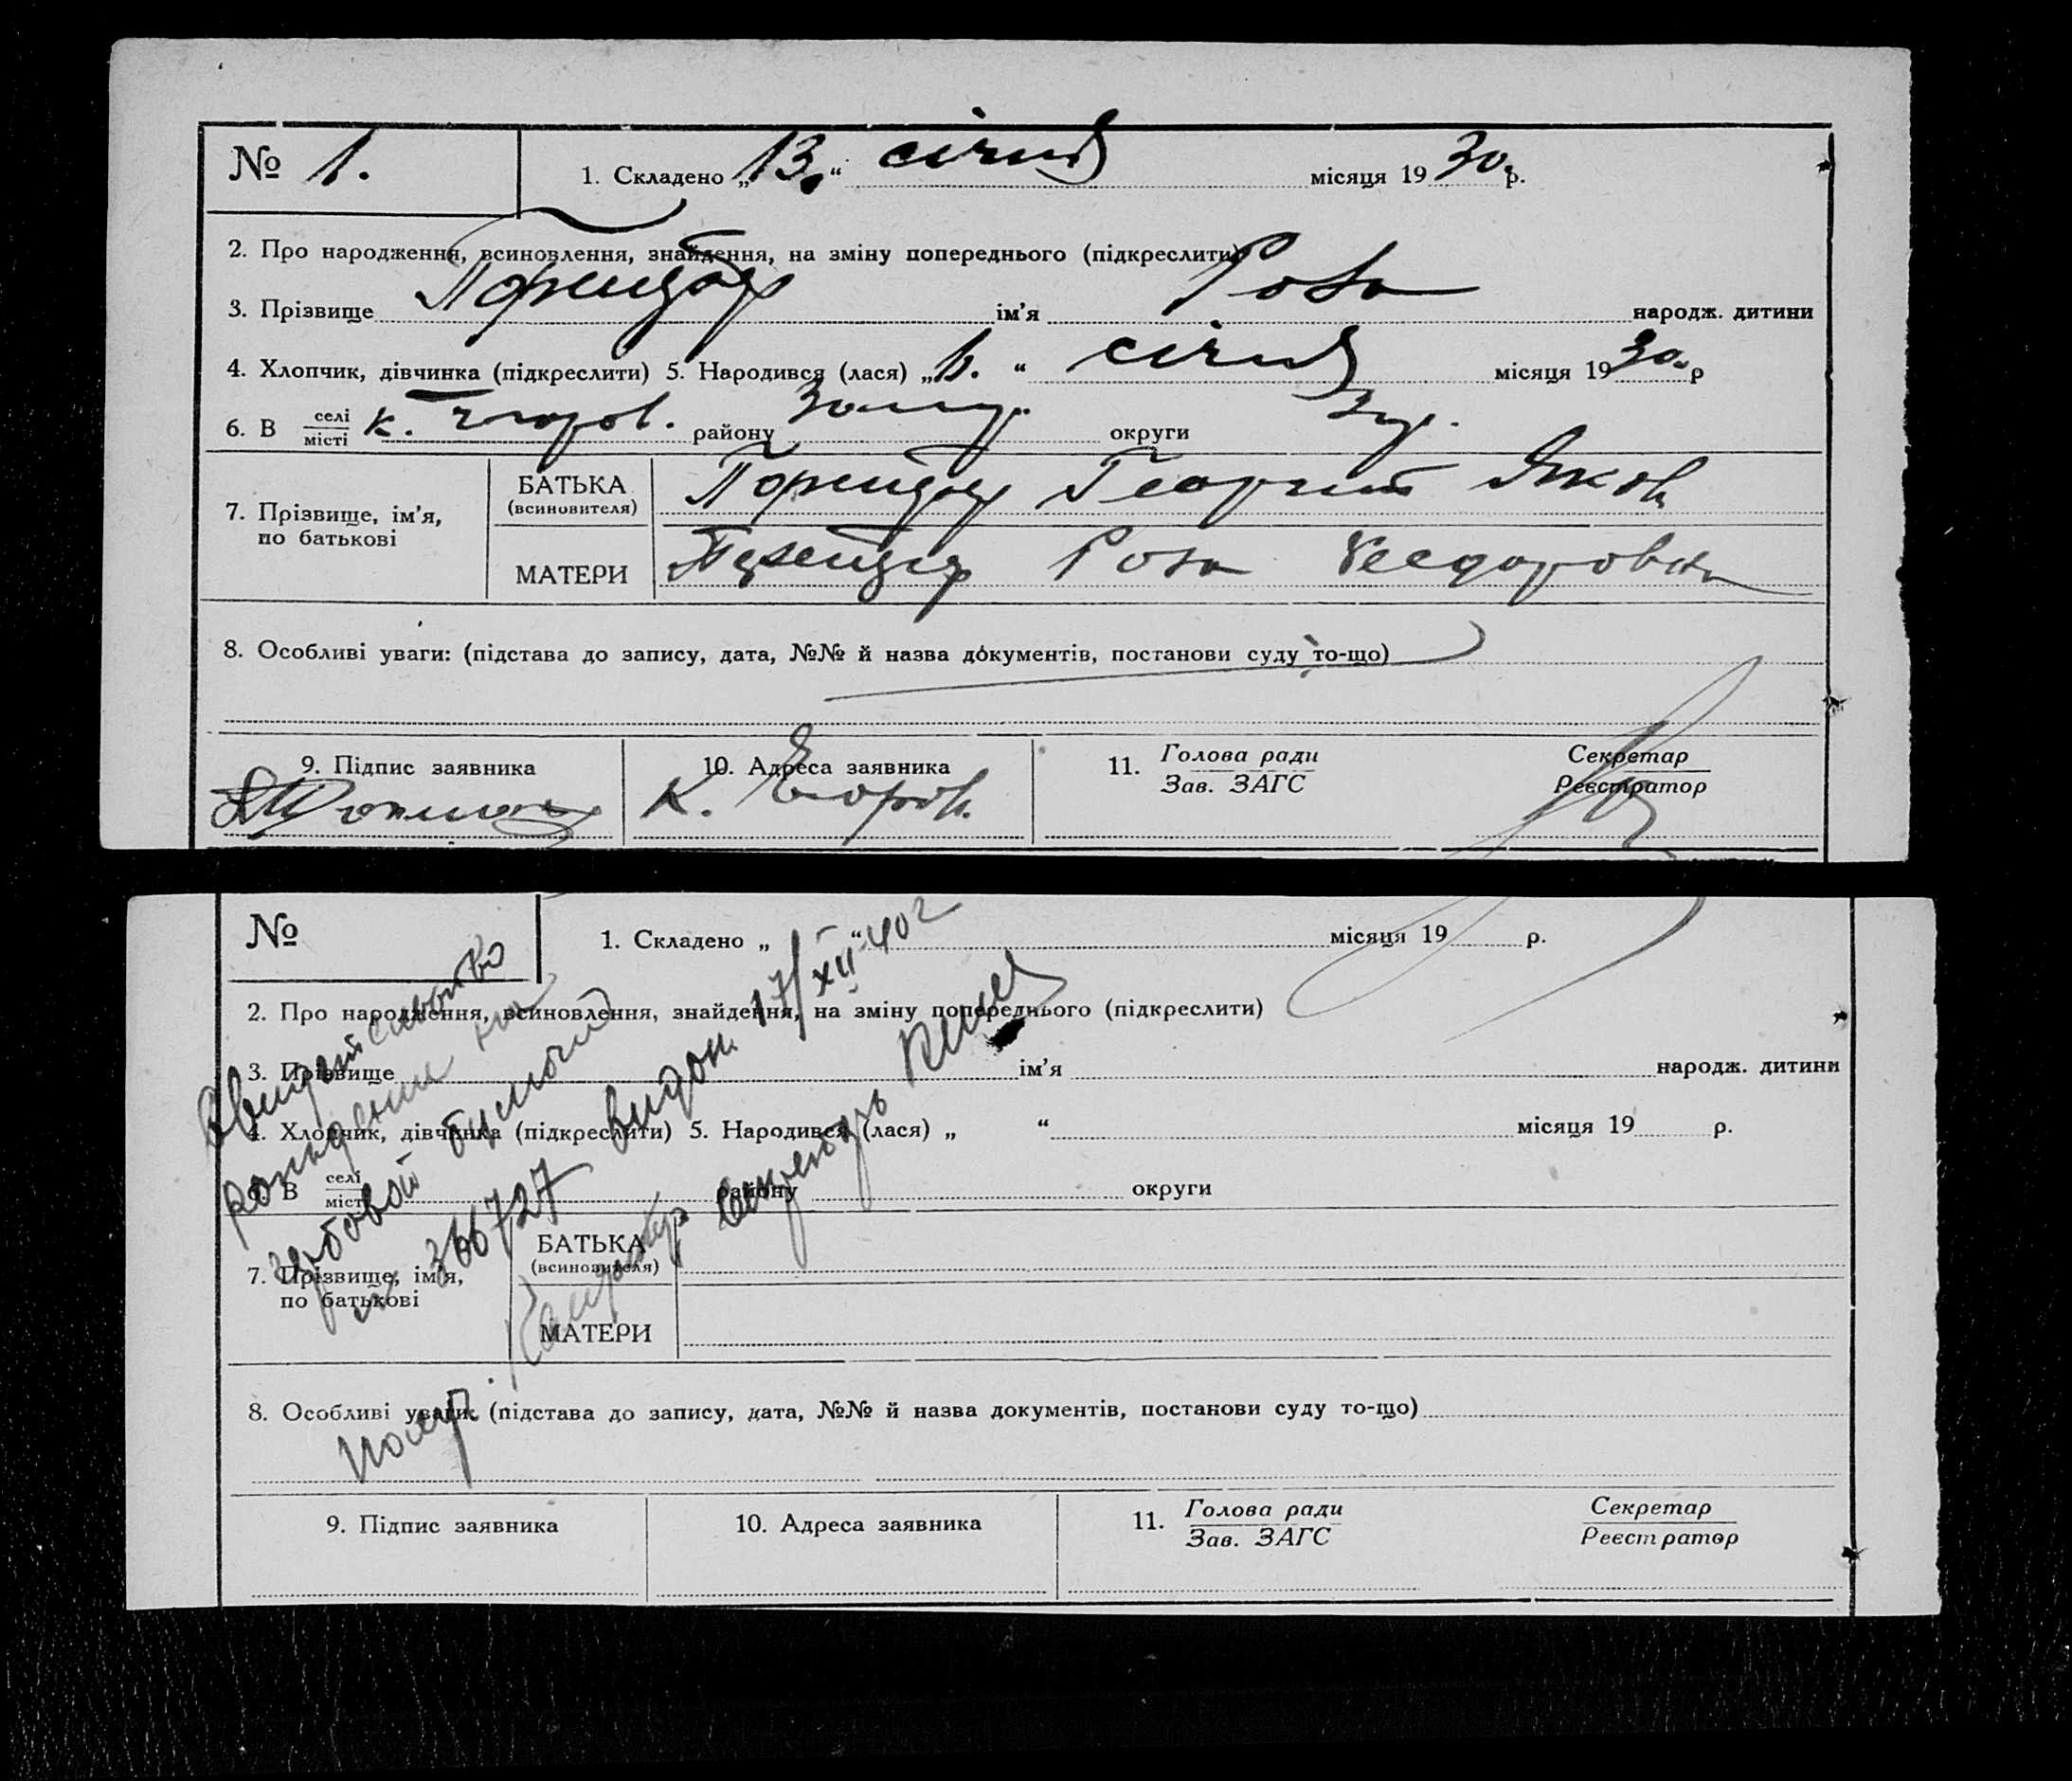 № 1.
1. Складено „13.“ січня місяця 1930 р.
2. Про народження, всиновлення, знайдення, на зміну попереднього (підкреслити)
3. Прізвище ім'я Роза народж. дитини
4. Хлопчик, дівчинка (підкреслити) 5. Народився (лася) „ “ січня місяця 1930 р
6. В селі місті к. району округи
7. Прізвище, ім'я, по батькові
БАТЬКА (всиновителя) Георгий Яков
МАТЕРИ Роза Феодоровна
8. Особливі уваги: (підстава до запису, дата, №№ й назва документів, постанови суду то-що)
9. Підпис заявника
10. Адреса заявника
К. Егоров.
11. Голова ради Зав. ЗАГС
Секретар Реєстратор
№
1. Складено „ “ місяця 19 р.
2. Про народження, всиновлення, знайдення, на зміну попереднього (підкреслити)
3. Прізвище ім'я народж. дитини
4. Хлопчик, дівчинка (підкреслити) 5. Народився (лася) „ “ місяця 19 р.
6. В селі місті району округи
7. Прізвище, ім'я, по батькові
БАТЬКА (всиновителя)
МАТЕРИ
8. Особливі уваги: (підстава до запису, дата, №№ й назва документів, постанови суду то-що)
9. Підпис заявника
10. Адреса заявника
11. Голова ради Зав. ЗАГС
Секретар Реєстратор
Свидетельство
рождении на
гербовой бумаги
№ 366727 видон. 17/XII-40 г
секретарь